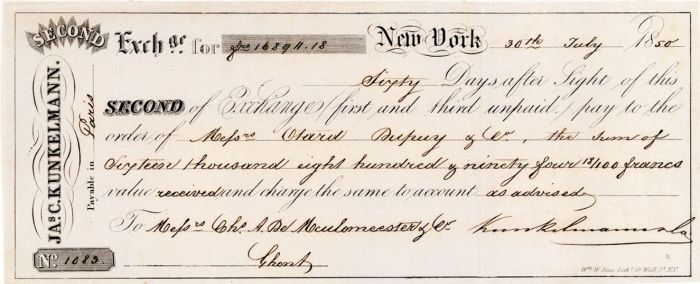 SECOND
Exchge. for frs 16894.18 New York 30th July 1850
Sixty Days after Sight of this
SECOND of Exchange (first and third unpaid) pay to the
order of Messrs Otard Dupuy & Co, the sum of
Sixteen thousand eight hundred & ninety four 18/100 francs
value received and charge the same to account as advised
To Messrs Chs. A. De Meulemeester & Co.
Ghent
JAS. C. KUNKELMANN.
Payable in Paris
No. 1083.